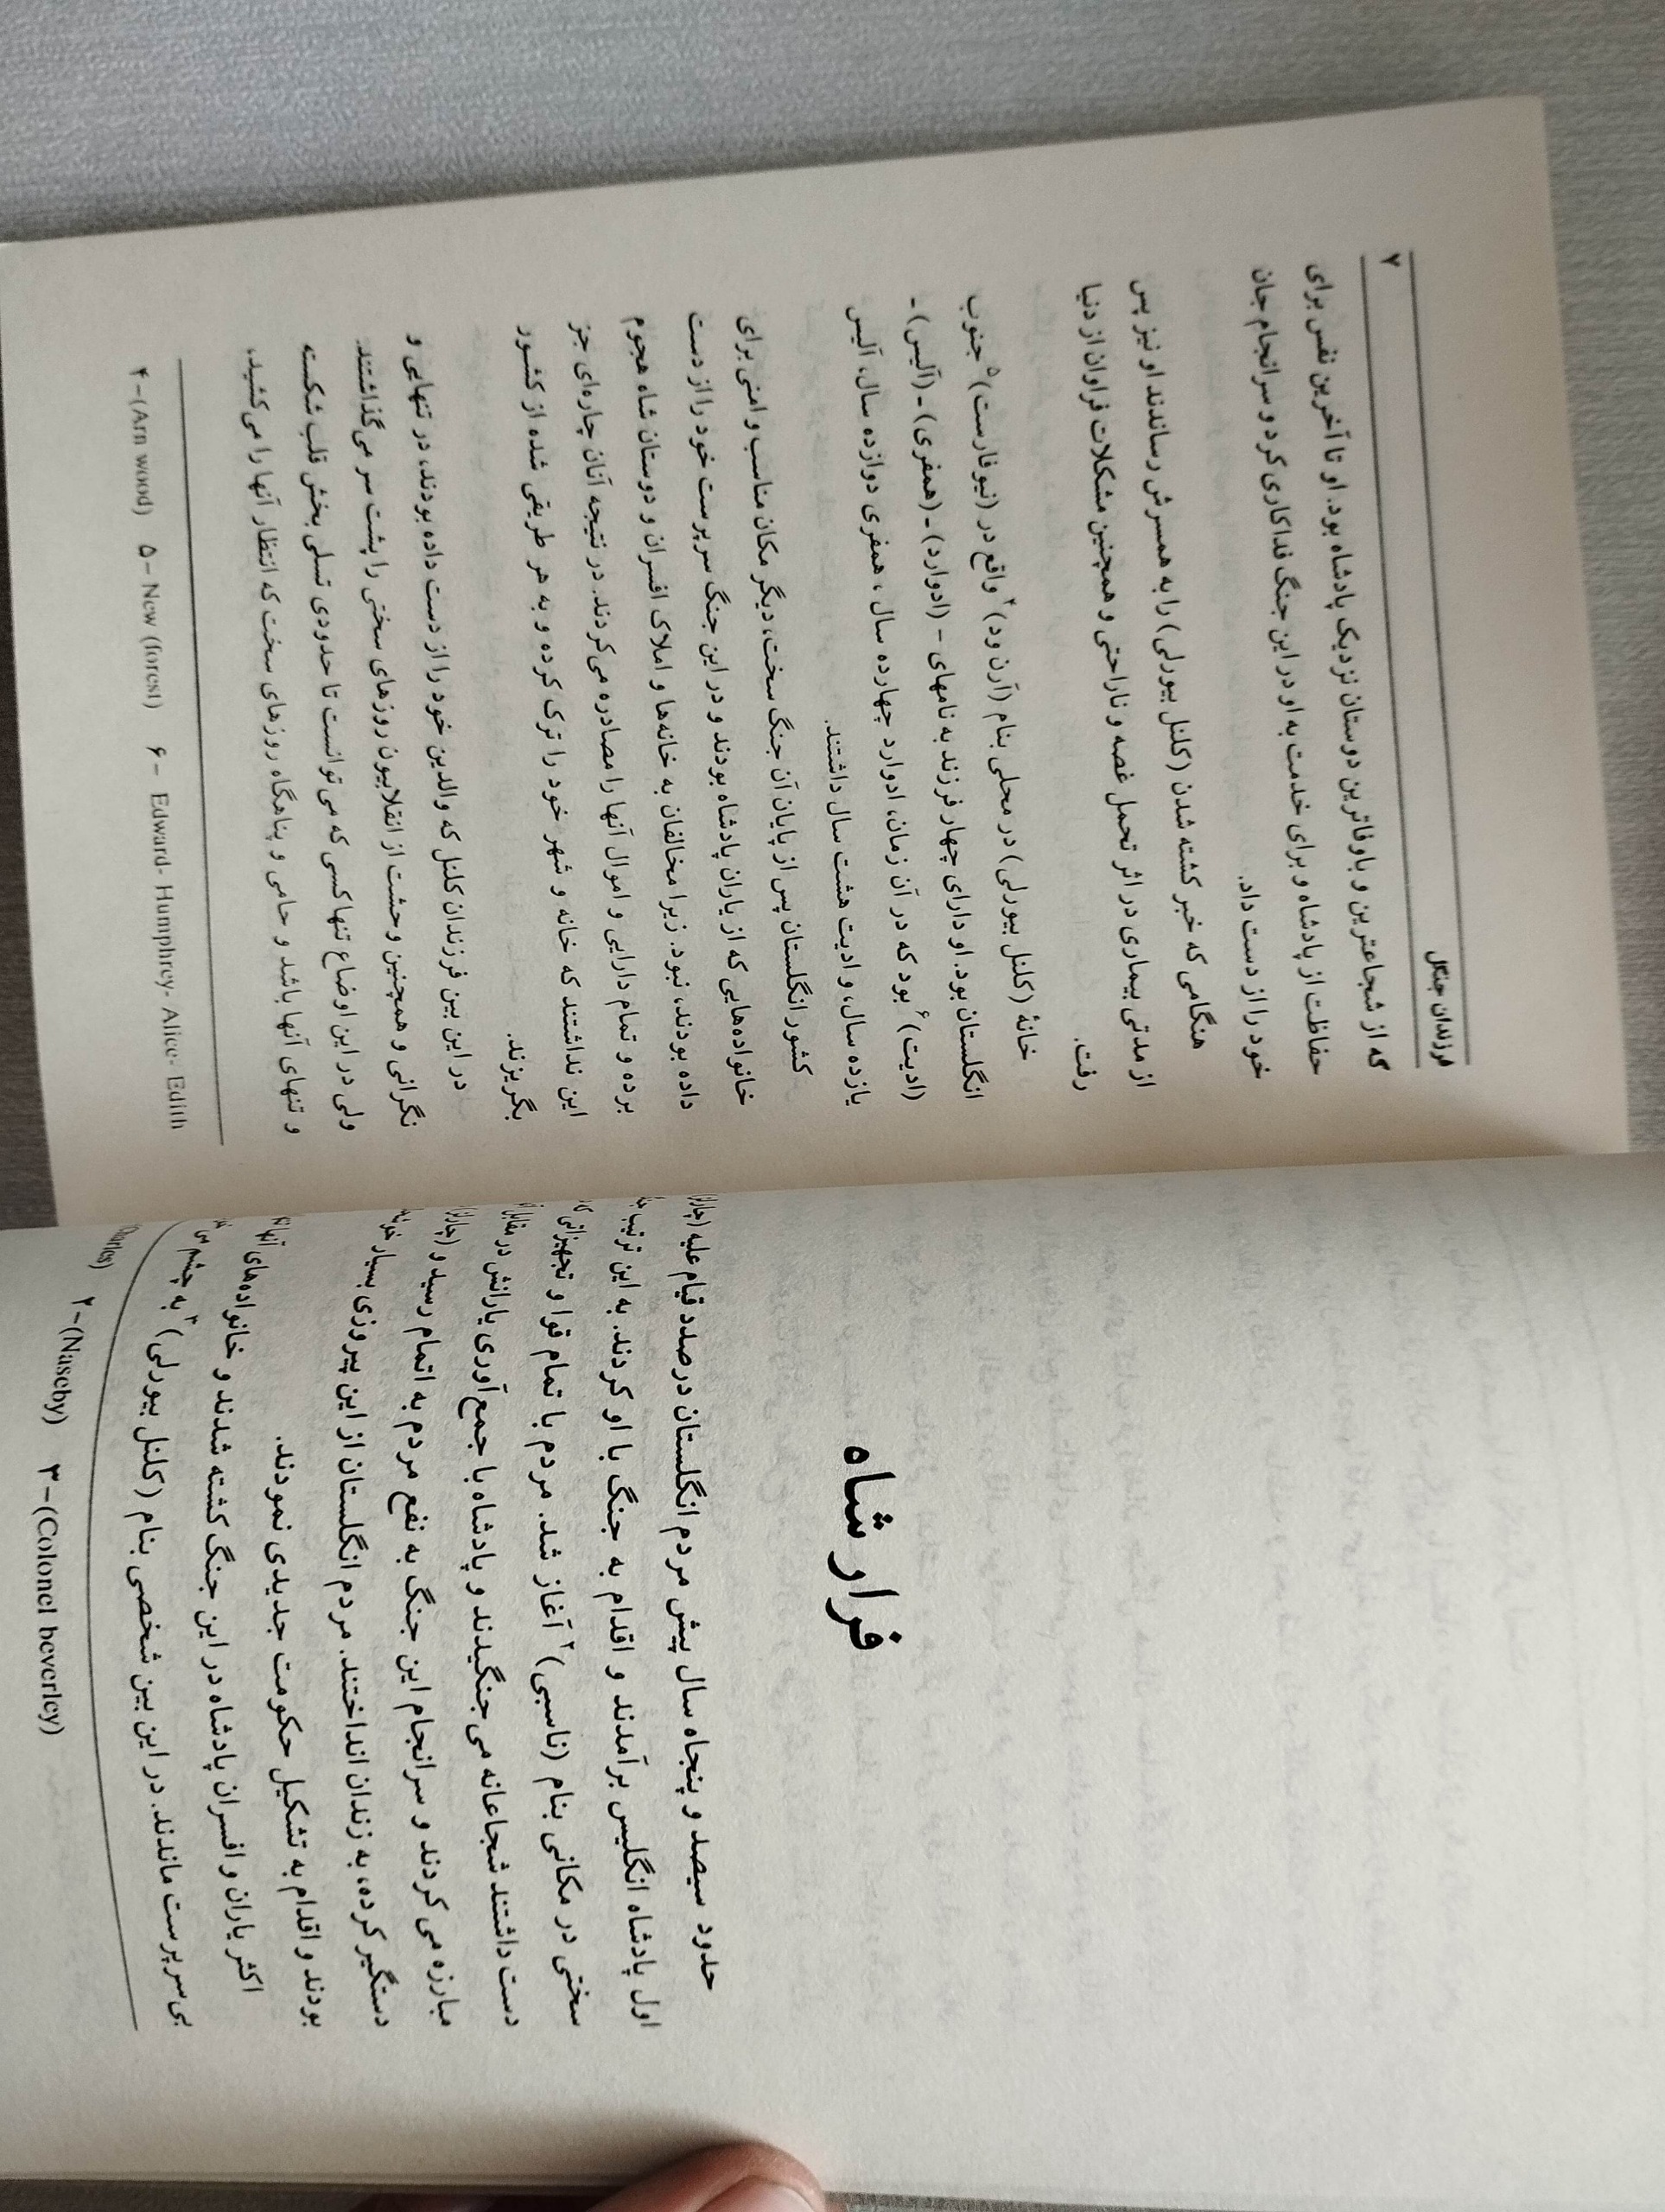 فرار شاه
حدود سیصد و پنجاه سال پیش مردم انگلستان درصدد قیام علیه
اول پادشاه انگلیس برآمدند و اقدام به جنگ با او کردند. به این ترتیب
سختی در مکانی بنام (ناسبی)۲ آغاز شد. مردم با تمام قوا و تجهیزاتی
دست داشتند شجاعانه می‌جنگیدند و پادشاه با جمع‌آوری یارانش در مقابل
مبارزه می‌کردند و سرانجام این جنگ به نفع مردم به اتمام رسید و
دستگیر کرده، به زندان انداختند. مردم انگلستان از این پیروزی بسیار
بودند و اقدام به تشکیل حکومت جدیدی نمودند.
اکثر یاران و افسران پادشاه در این جنگ کشته شدند و خانواده‌های آنها
بی‌سرپرست ماندند. در این بین شخصی بنام (کلنل بیورلی)۳ به چشم
۲-(Naseby) ۳-(Colonel beverley)
فرزندان جنگل ۷
که از شجاعترین و باوفاترین دوستان نزدیک پادشاه بود. او تا آخرین نفس برای
حفاظت از پادشاه و برای خدمت به او در این جنگ فداکاری کرد و سرانجام جان
خود را از دست داد.
هنگامی که خبر کشته شدن (کلنل بیورلی) را به همسرش رساندند او نیز پس
از مدتی بیماری در اثر تحمل غصه و ناراحتی و همچنین مشکلات فراوان از دنیا
رفت.
خانهٔ (کلنل بیورلی) در محلی بنام (آرن ود)۴ واقع در (نیو فارست)۵ جنوب
انگلستان بود. او دارای چهار فرزند به نامهای - (ادوارد) - (همفری) - (آلیس) -
(ادیت)۶ بود که در آن زمان، ادوارد چهارده سال، همفری دوازده سال، آلیس
یازده سال، و ادیت هشت سال داشتند.
کشور انگلستان پس از پایان آن جنگ سخت، دیگر مکان مناسب و امنی برای
خانواده‌هایی که از یاران پادشاه بودند و در این جنگ سرپرست خود را از دست
داده بودند، نبود. زیرا مخالفان به خانه‌ها و املاک افسران و دوستان شاه هجوم
برده و تمام دارایی و اموال آنها را مصادره می‌کردند. در نتیجه آنان چاره‌ای جز
این نداشتند که خانه و شهر خود را ترک کرده و به هر طریقی شده از کشور
بگریزند.
در این بین فرزندان کلنل که والدین خود را از دست داده بودند، در تنهایی و
نگرانی و همچنین وحشت از انقلابیون روزهای سختی را پشت سر می‌گذاشتند.
ولی در این اوضاع تنها کسی که می‌توانست تا حدودی تسلی بخش قلب شکسته
و تنهای آنها باشد و حامی و پناهگاه روزهای سخت که انتظار آنها را می‌کشید،
۴-(Arn wood) ۵- New (forest) ۶- Edward- Humphrey- Alice- Edith